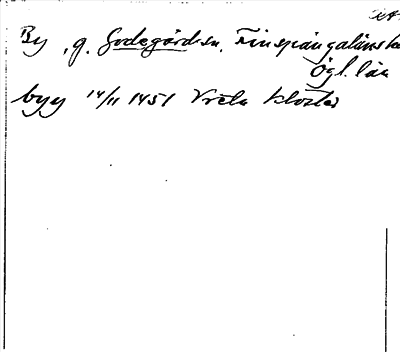 By, g. Godegårds sn, Finspångaläns hd
Ögl. län
byy 14/11 1451 Vreta kloster